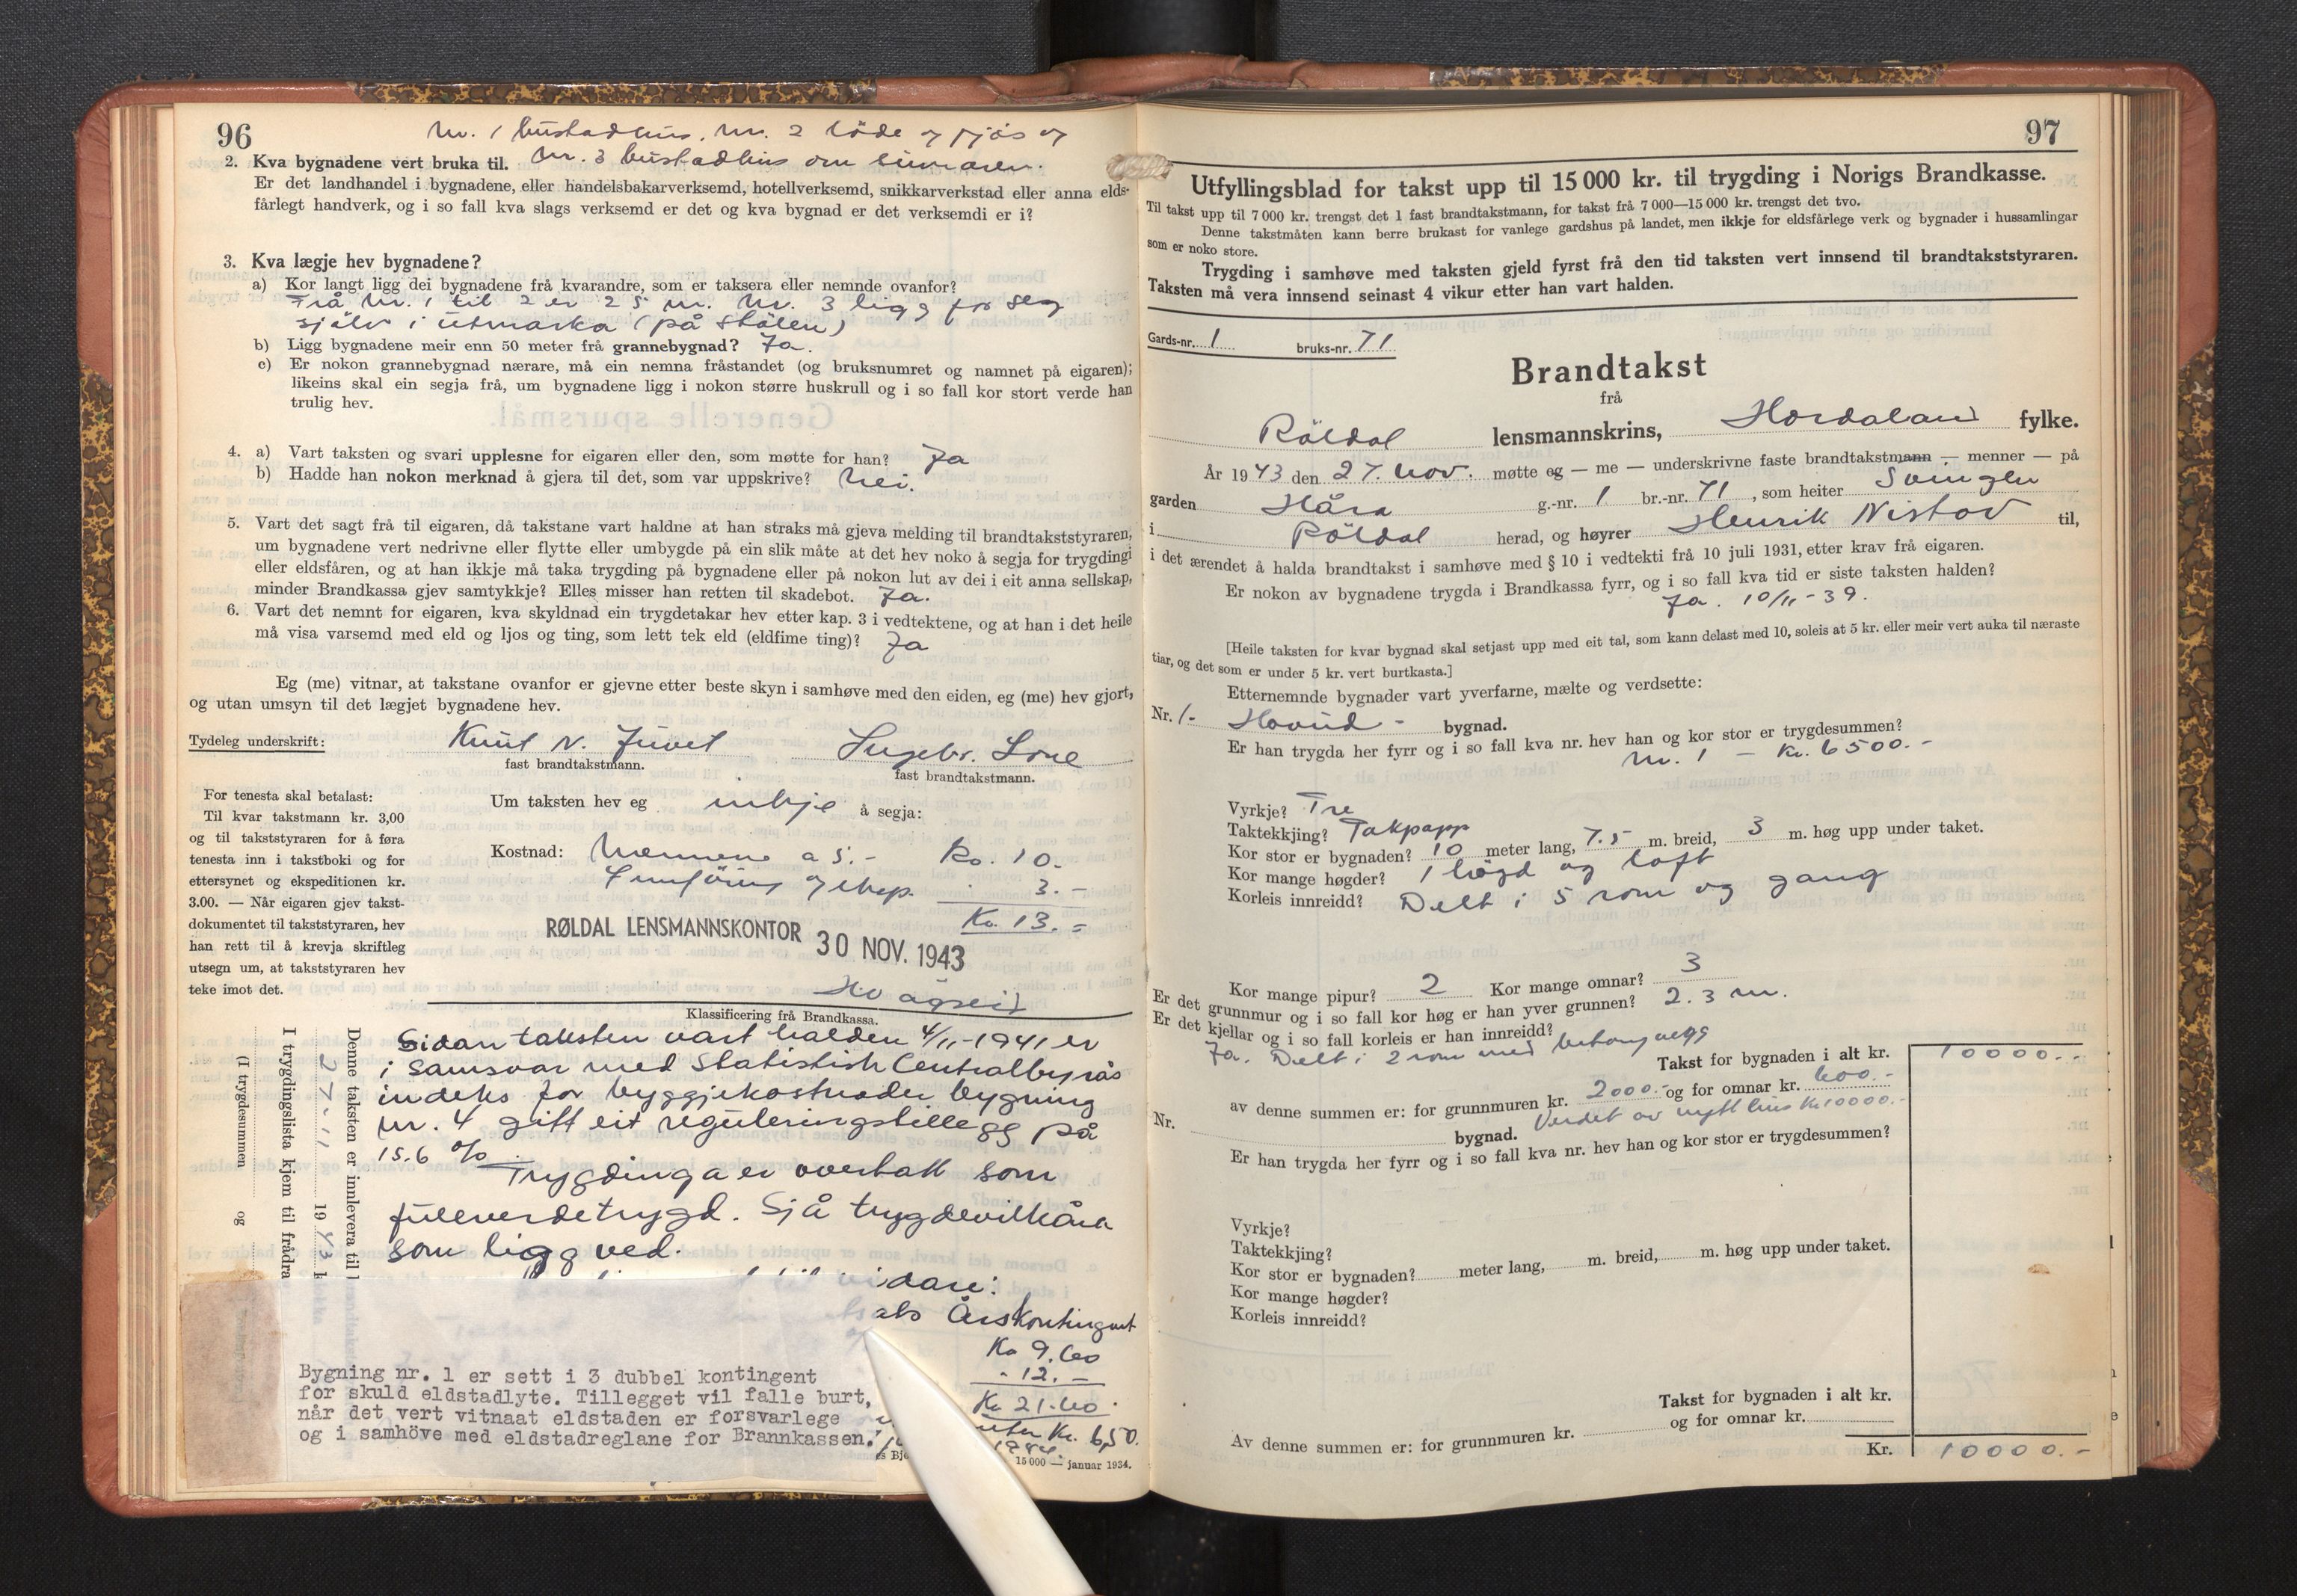 96
Nr. 1 bustadhus, nr. 2 løde og fjøs og
2. Kva bygnadene vert bruka til. Nr. 3 bustadhus om sumaren.
Er det landhandel i bygnadene, eller handelsbakarverksemd, hotellverksemd, snikkarverkstad eller anna elds-
fårlegt handverk, og i so fall kva slags verksemd er det og kva bygnad er det verksemdi er i?
3. Kva lægje hev bygnadene?
a) Kor langt ligg dei bygnadene frå kvarandre, som er taksera eller nemnde ovanfor?
Frå Nr. 1 til 2 er 25 m. Nr. 3 ligg for seg
sjølv i utmarka (på stølen)
b) Ligg bygnadene meir enn 50 meter frå grannebygnad? Ja.
c) Er nokon grannebygnad nærare, må ein nemna fråstandet (og bruksnumret og namnet på eigaren);
likeins skal ein segja frå, um bygnadene ligg i nokon større huskrull og i so fall kor stort verde han
trulig hev.
4. a) Vart taksten og svari upplesne for eigaren eller den, som møtte for han? Ja
b) Hadde han nokon merknad å gjera til det, som var uppskrive? Nei.
5. Vart det sagt frå til eigaren, då takstane vart haldne at han straks må gjeva melding til brandtakststyraren,
um bygnadene vert nedrivne eller flytte eller umbygde på ein slik måte at det hev noko å segja for trygdingi
eller eldsfåren, og at han ikkje må taka trygding på bygnadene eller på nokon lut av dei i eit anna sellskap,
minder Brandkassa gjev samtykkje? Elles misser han retten til skadebot. Ja.
6. Vart det nemnt for eigaren, kva skyldnad ein trygdetakar hev etter kap. 3 i vedtektene, og at han i det heile
må visa varsemd med eld og ljos og ting, som lett tek eld (eldfime ting)? Ja
Eg (me) vitnar, at takstane ovanfor er gjevne etter beste skyn i samhøve med den eiden, eg (me) hev gjort,
og utan umsyn til det lægjet bygnadene hev.
Tydeleg underskrift: Knut N. Juvet
fast brandtakstmann. fast brandtakstmann.
For tenesta skal betalast:
Til kvar takstmann kr. 3,00
og til takststyraren for å føra
tenesta inn i takstboki og for
ettersynet og ekspeditionen kr.
3.00. — Når eigaren gjev takst-
dokumentet til takststyraren, hev
han rett til å krevja skriftleg
utsegn um, at takststyraren hev
teke imot det.
Um taksten hev eg inkje å segja:
Kostnad: Mennene a 5.- Kr. 10.-
3.-
Kr. 13.=
RØLDAL LENSMANNSKONTOR 30 NOV. 1943
Klassificering frå Brandkassa.
Denne taksten er innlevera til
27-11 1943
I trygdingslista kjem til frådra
(I trygdesummen og
Sidan taksten vart halden 4/11-1941 er
i samsvar med Statistisk Centralbyrås
indeks for byggjekostnader bygning
nr. 4 gitt eit reguleringstillegg på
15.6 %.
Trygdinga er overtatt som
fulverdetrygd. Sjå trygdevilkåra
som ligg ved.
idare:
Årskontingent
Kr 9.60
- 12.-
Kr 21.60
Kr. 6,50.
Bygning nr. 1 er sett i 3 dubbel kontingent
for skuld eldstadlyte. Tillegget vil falle burt,
når det vert vitnaat eldstaden er forsvarlege
og i samhöve med eldstadreglane for Brannkassen.
15 000 — januar 1934.
97
Utfyllingsblad for takst upp til 15 000 kr. til trygding i Norigs Brandkasse.
Til takst upp til 7 000 kr. trengst det 1 fast brandtakstmann, for takst frå 7 000—15 000 kr. trengst det tvo.
Denne takstmåten kann berre brukast for vanlege gardshus på landet, men ikkje for eldsfårlege verk og bygnader i hussamlingar
som er noko store.
Trygding i samhøve med taksten gjeld fyrst frå den tid taksten vert innsend til brandtakststyraren.
Taksten må vera innsend seinast 4 vikur etter han vart halden.
Gards-nr. 1 bruks-nr. 71
Brandtakst
frå
Röldal lensmannskrins, Hordaland fylke.
År 1943 den 27. nov. møtte eg — me — underskrivne faste brandtakstmann — menner — på
garden Håra g.-nr. 1 br.-nr. 71, som heiter Svingen
i Röldal herad, og høyrer Henrik Nistov til,
i det ærendet å halda brandtakst i samhøve med § 10 i vedtekti frå 10 juli 1931, etter krav frå eigaren.
Er nokon av bygnadene trygda i Brandkassa fyrr, og i so fall kva tid er siste taksten halden?
Ja. 10/11-39.
[Heile taksten for kvar bygnad skal setjast upp med eit tal, som kann delast med 10, soleis at 5 kr. eller meir vert auka til næraste
tiar, og det som er under 5 kr. vert burtkasta.]
Etternemnde bygnader vart yverfarne, mælte og verdsette:
Nr. 1- Hovud- bygnad.
Er han trygda her fyrr og i so fall kva nr. hev han og kor stor er trygdesummen?
Nr. 1 - Kr. 6500.-
Vyrkje? Tre
Taktekkjing? Takpapp
Kor stor er bygnaden? 10 meter lang, 7.5 m. breid, 3 m. høg upp under taket.
Kor mange høgder? 1 høgd og loft
Korleis innreidd? Delt i 5 rom og gang
Kor mange pipur? 2 Kor mange omnar? 3
Er det grunnmur og i so fall kor høg er han yver grunnen? 2.3 m.
Er det kjellar og i so fall korleis er han innreidd?
Ja. Delt i 2 rom med betongvegg
Takst for bygnaden i alt kr. 10000.-
av denne summen er: for grunnmuren kr. 2000.- og for omnar kr. 600.-
Verdet av nytt hus Kr 10000.-
Nr. bygnad.
Er han trygda her fyrr og i so fall kva nr. hev han og kor stor er trygdesummen?
Vyrkje?
Taktekkjing?
Kor stor er bygnaden? meter lang, m. breid, m. høg upp under taket.
Kor mange høgder?
Korleis innreidd?
Takst for bygnaden i alt kr.
Av denne summen er: for grunnmuren kr. og for omnar kr.
Kr. 10000.-